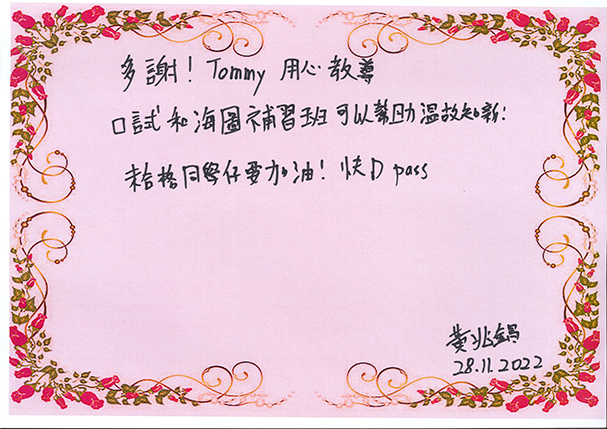 多謝！Tommy 用心教導
口試和海圖補習班可以幫助溫故知新！
未合格同學仔要加油！快D pass
黃兆錩
28.11.2022